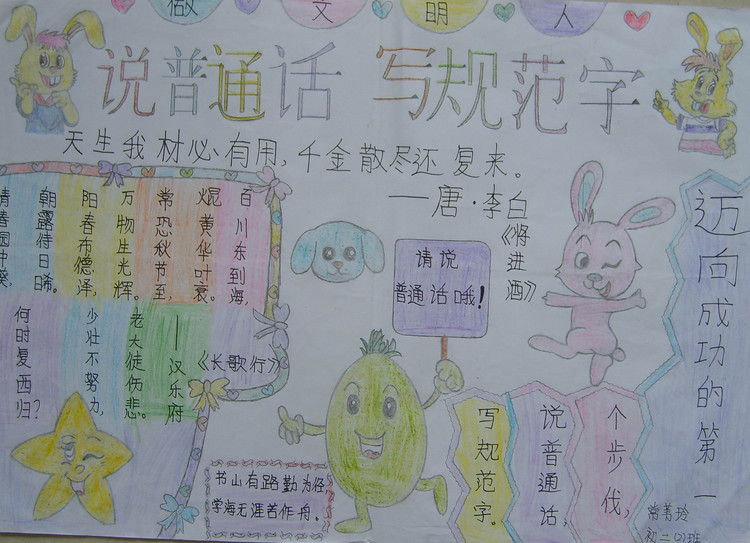 做文明人
说普通话 写规范字
天生我材必有用，千金散尽还复来。
——唐·李白
《将进酒》
园中葵，
朝露侍日晞。
阳春布德泽，
万物生光辉。
常恐秋节至，
焜黄华叶衰。
百川东到海，
何时复西归？
少壮不努力，
老大徒伤悲。
——汉乐府
《长歌行》
请说
普通话哦！
迈向成功的第一
个步伐，
说普通话，
写规范字。
书山有路勤为径，
学海无涯苦作舟。
初二(1)班